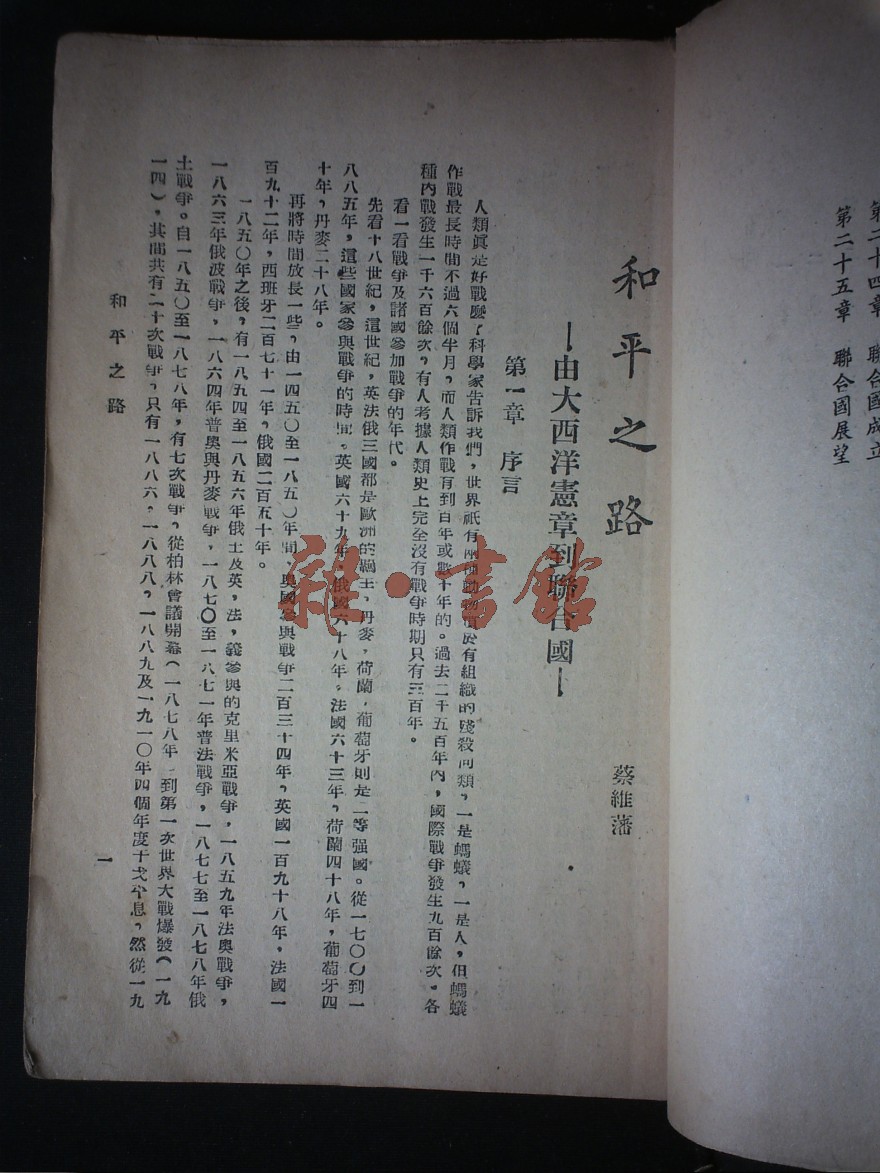 第二十四章 聯合國成立
第二十五章 聯合國展望
和平之路
—由大西洋憲章到聯合國—
蔡維藩
第一章 序言
人類眞是好戰麼？科學家告訴我們，世界祇有兩種動物慣於有組織的殘殺同類，一是螞蟻，一是人，但螞蟻
作戰最長時間不過六個半月，而人類作戰有到百年或數十年的。過去二千五百年內，國際戰爭發生九百餘次。各
種內戰發生一千六百餘次，有人考據人類史上完全沒有戰爭時期只有三百年。
看一看戰爭及諸國參加戰爭的年代。
先看十八世紀，這世紀，英法俄三國都是歐洲的霸王，丹麥，荷蘭，葡萄牙則是二等强國。從一七〇〇到一
八八五年，這些國家參與戰爭的時間。英國六十九年，俄國六十八年。法國六十三年，荷蘭四十八年，葡萄牙四
十年，丹麥二十八年。
再將時間放長一些，由一四五〇至一八五〇年間，奥國參與戰爭二百三十四年，英國一百九十八年，法國一
百九十二年，西班牙二百七十一年，俄國二百五十年。
一八五〇年之後，有一八五四至一八五六年俄土及英，法，義參與的克里米亞戰爭，一八五九年法奧戰爭，
一八六三年俄波戰爭，一八六四年普奧與丹麥戰爭，一八七〇至一八七一年普法戰爭，一八七七至一八七八年俄
土戰爭。自一八五〇至一八七八年，有七次戰爭，從柏林會議開幕（一八七八年 到第一次世界大戰爆發（一九
一四），其間共有二十次戰爭，只有一八八六，一八八八，一八八九及一九一〇年四個年度干戈平息，然從一九
和平之路
一
雜·書館